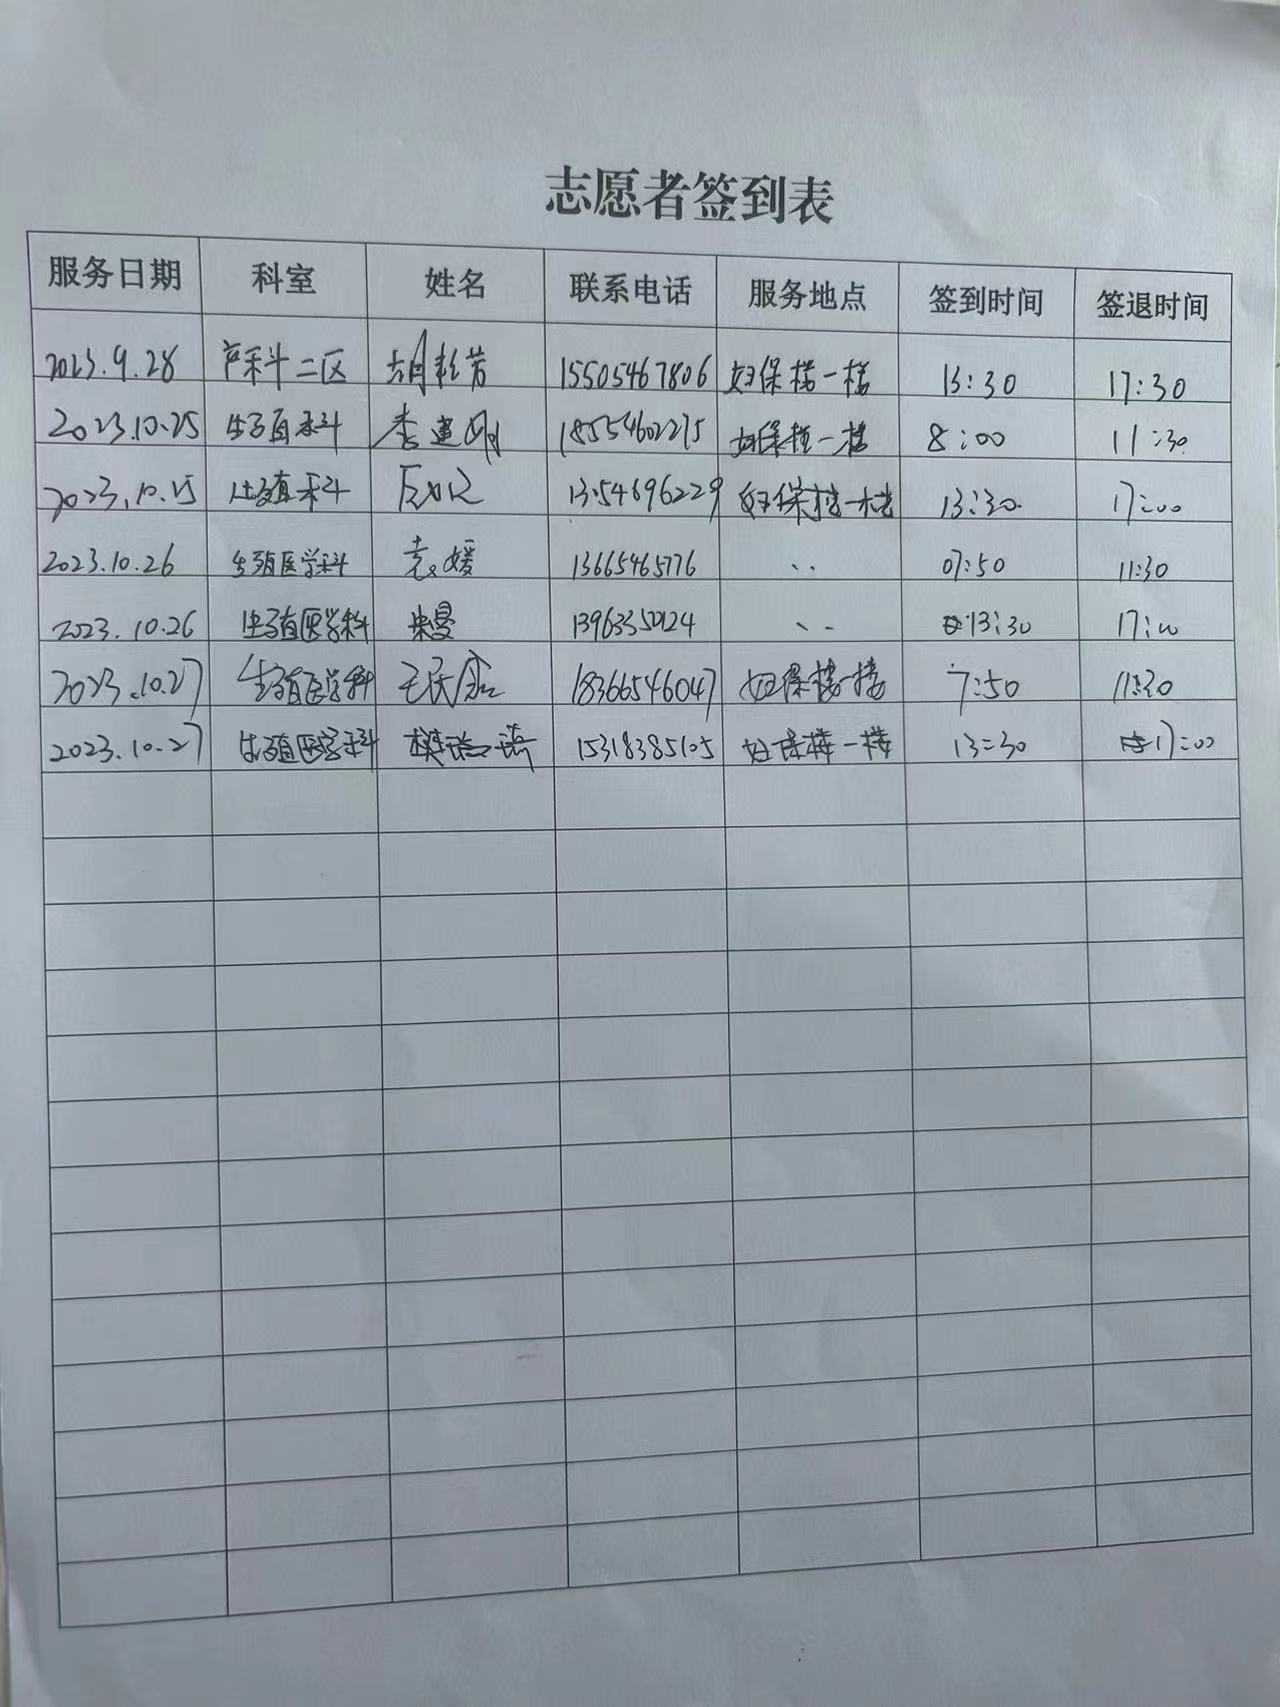 志愿者签到表
服务日期 科室 姓名 联系电话 服务地点 签到时间 签退时间
2023.9.28 产科二区 15505467806 妇保楼一楼 13:30 17:30
2023.10.25 生殖科 李建刚 18554602275 妇保楼一楼 8:00 11:30
2023.10.25 生殖科 妇保楼一楼 13:30 17:00
2023.10.26 生殖医学科 袁媛 13665465776 、、 07:50 11:30
2023.10.26 生殖医学科 、、 13:30 17:00
2023.10.27 生殖医学科 18366546047 妇保楼一楼 7:50 11:30
2023.10.27 生殖医学科 15318385105 妇保楼一楼 13:30 17:00